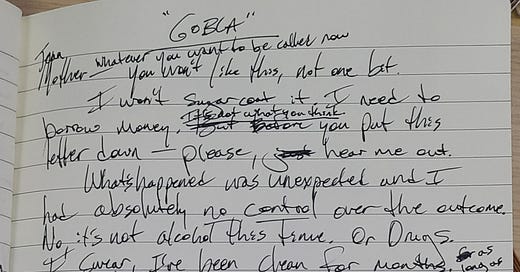 "GOBLA"
Joan
Mother - whatever you want to be called now
You won't like this, not one bit.
I won't sugar coat it I need to
It's not what you think.
borrow money. But before you put this
letter down - please, just hear me out.
What's happened was unexpected and I
had absolutely no control over the outcome.
No, it's not alcohol this time. Or Drugs.
I swear, I've been clean for months, for as
long as